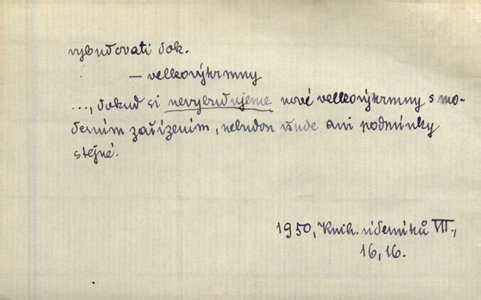 vybudovati dok.
— velkovýkrmny
..., dokud si nevybudujeme nové velkovýkrmny s mo-
derním zařízením, nebudou všude ani podmínky
stejné.
1950, Knih. úderníků VII.,
16, 16.